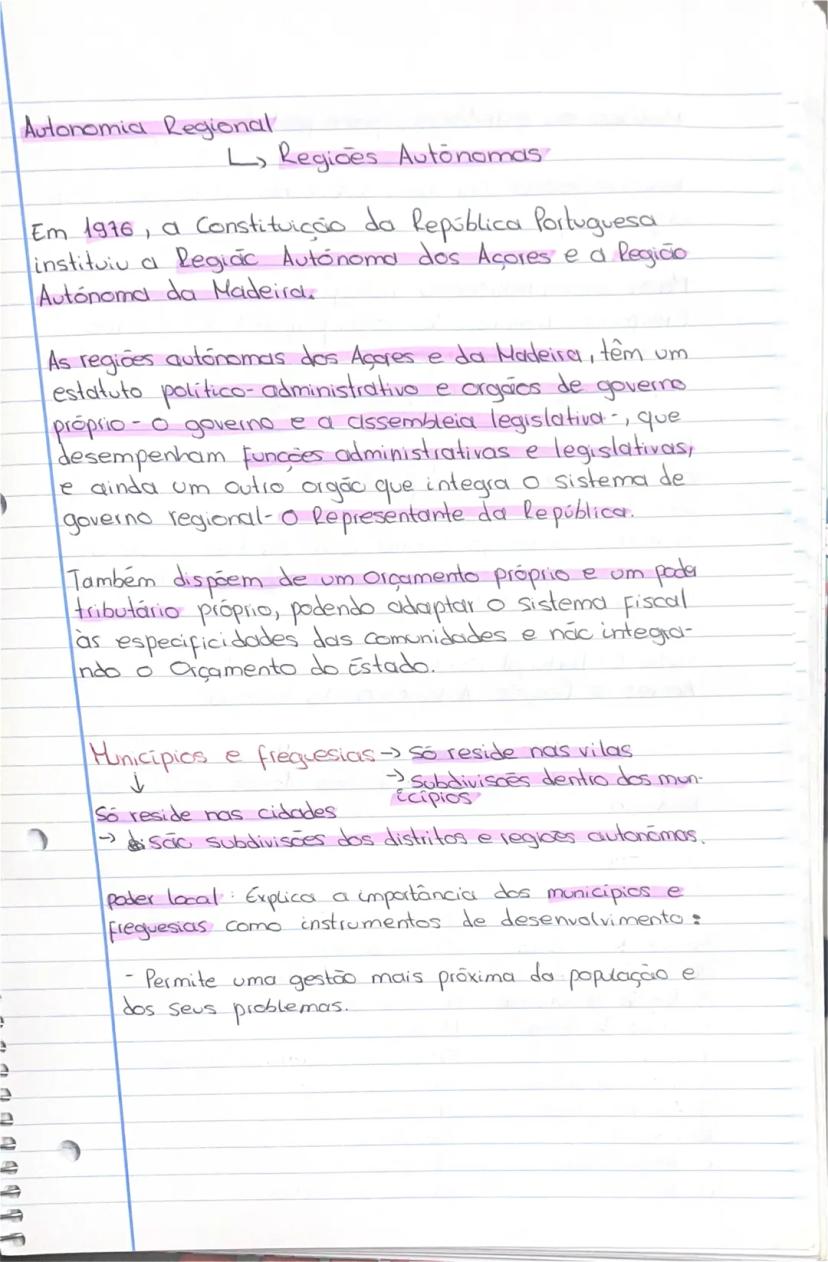 Autonomia Regional
↳ Regiões Autónomas
Em 1976, a Constituição da República Portuguesa
instituiu a Região Autónoma dos Açores e a Região
Autónoma da Madeira.
As regiões autónomas dos Açores e da Madeira, têm um
estatuto político-administrativo e orgãos de governo
próprio - o governo e a assembleia legislativa -, que
desempenham funções administrativas e legislativas,
e ainda um outro orgão que integra o sistema de
governo regional - o Representante da República.
Também dispõem de um orçamento próprio e um poder
tributário próprio, podendo adaptar o sistema fiscal
às especificidades das comunidades e não integra-
ndo o Orçamento do Estado.
Municípios e freguesias → Só reside nas vilas
↓ → Subdivisões dentro dos mun-
icípios
Só reside nas cidades
→ são subdivisões dos distritos e regiões autonómas.
poder local: Explica a importância dos municípios e
freguesias como instrumentos de desenvolvimento:
- Permite uma gestão mais próxima da população e
dos seus problemas.